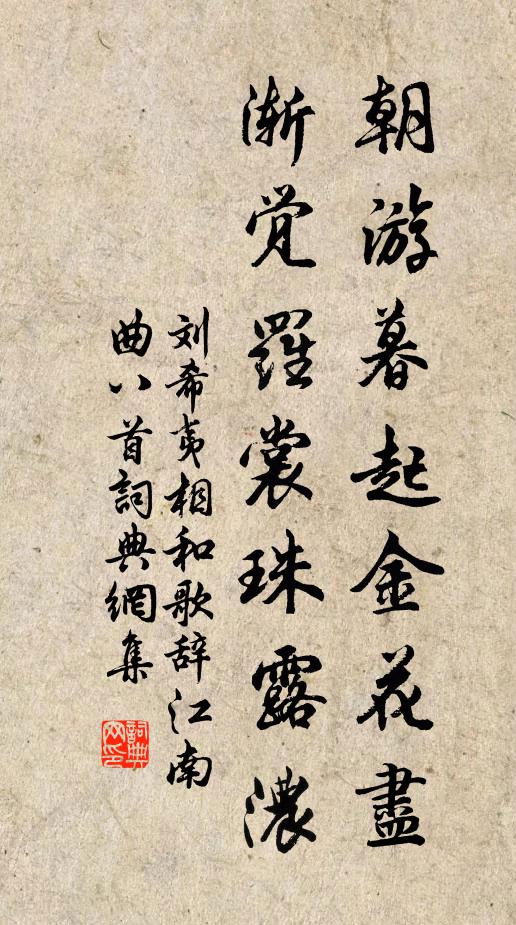 朝游暮起金花盡
渐覚羅裳珠露濃
刘希夷相和歌辞江南
曲八首詞典網集
詞典
网印